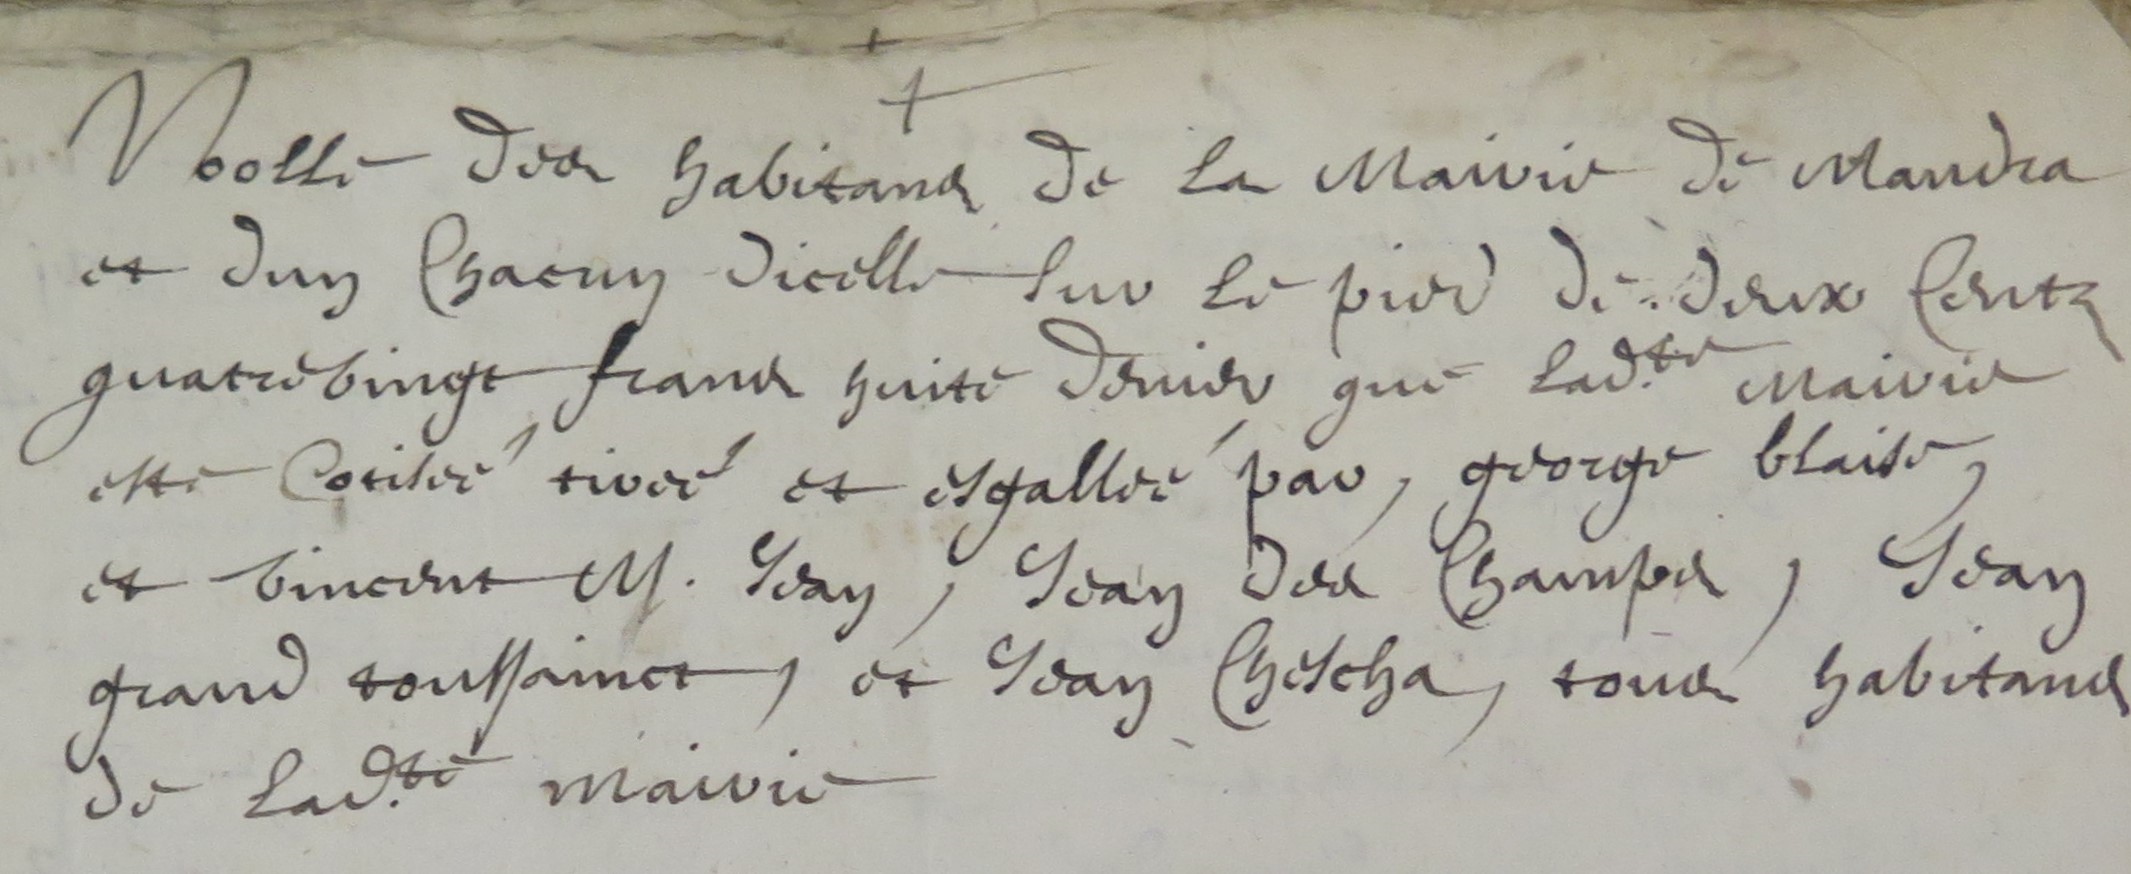 Roolle des habitans de la Mairie de Mandra
et dun chacun dicelle sur le pied de deux centz
quatrevingt frans huite denier que lad.te Mairie
este cotisée tirée et esgallée par, george blaise,
et vincent M. Jean, Jean des Champs, Jean
grand toussainct, et Jean Chescha, tous habitans
de lad.te mairie